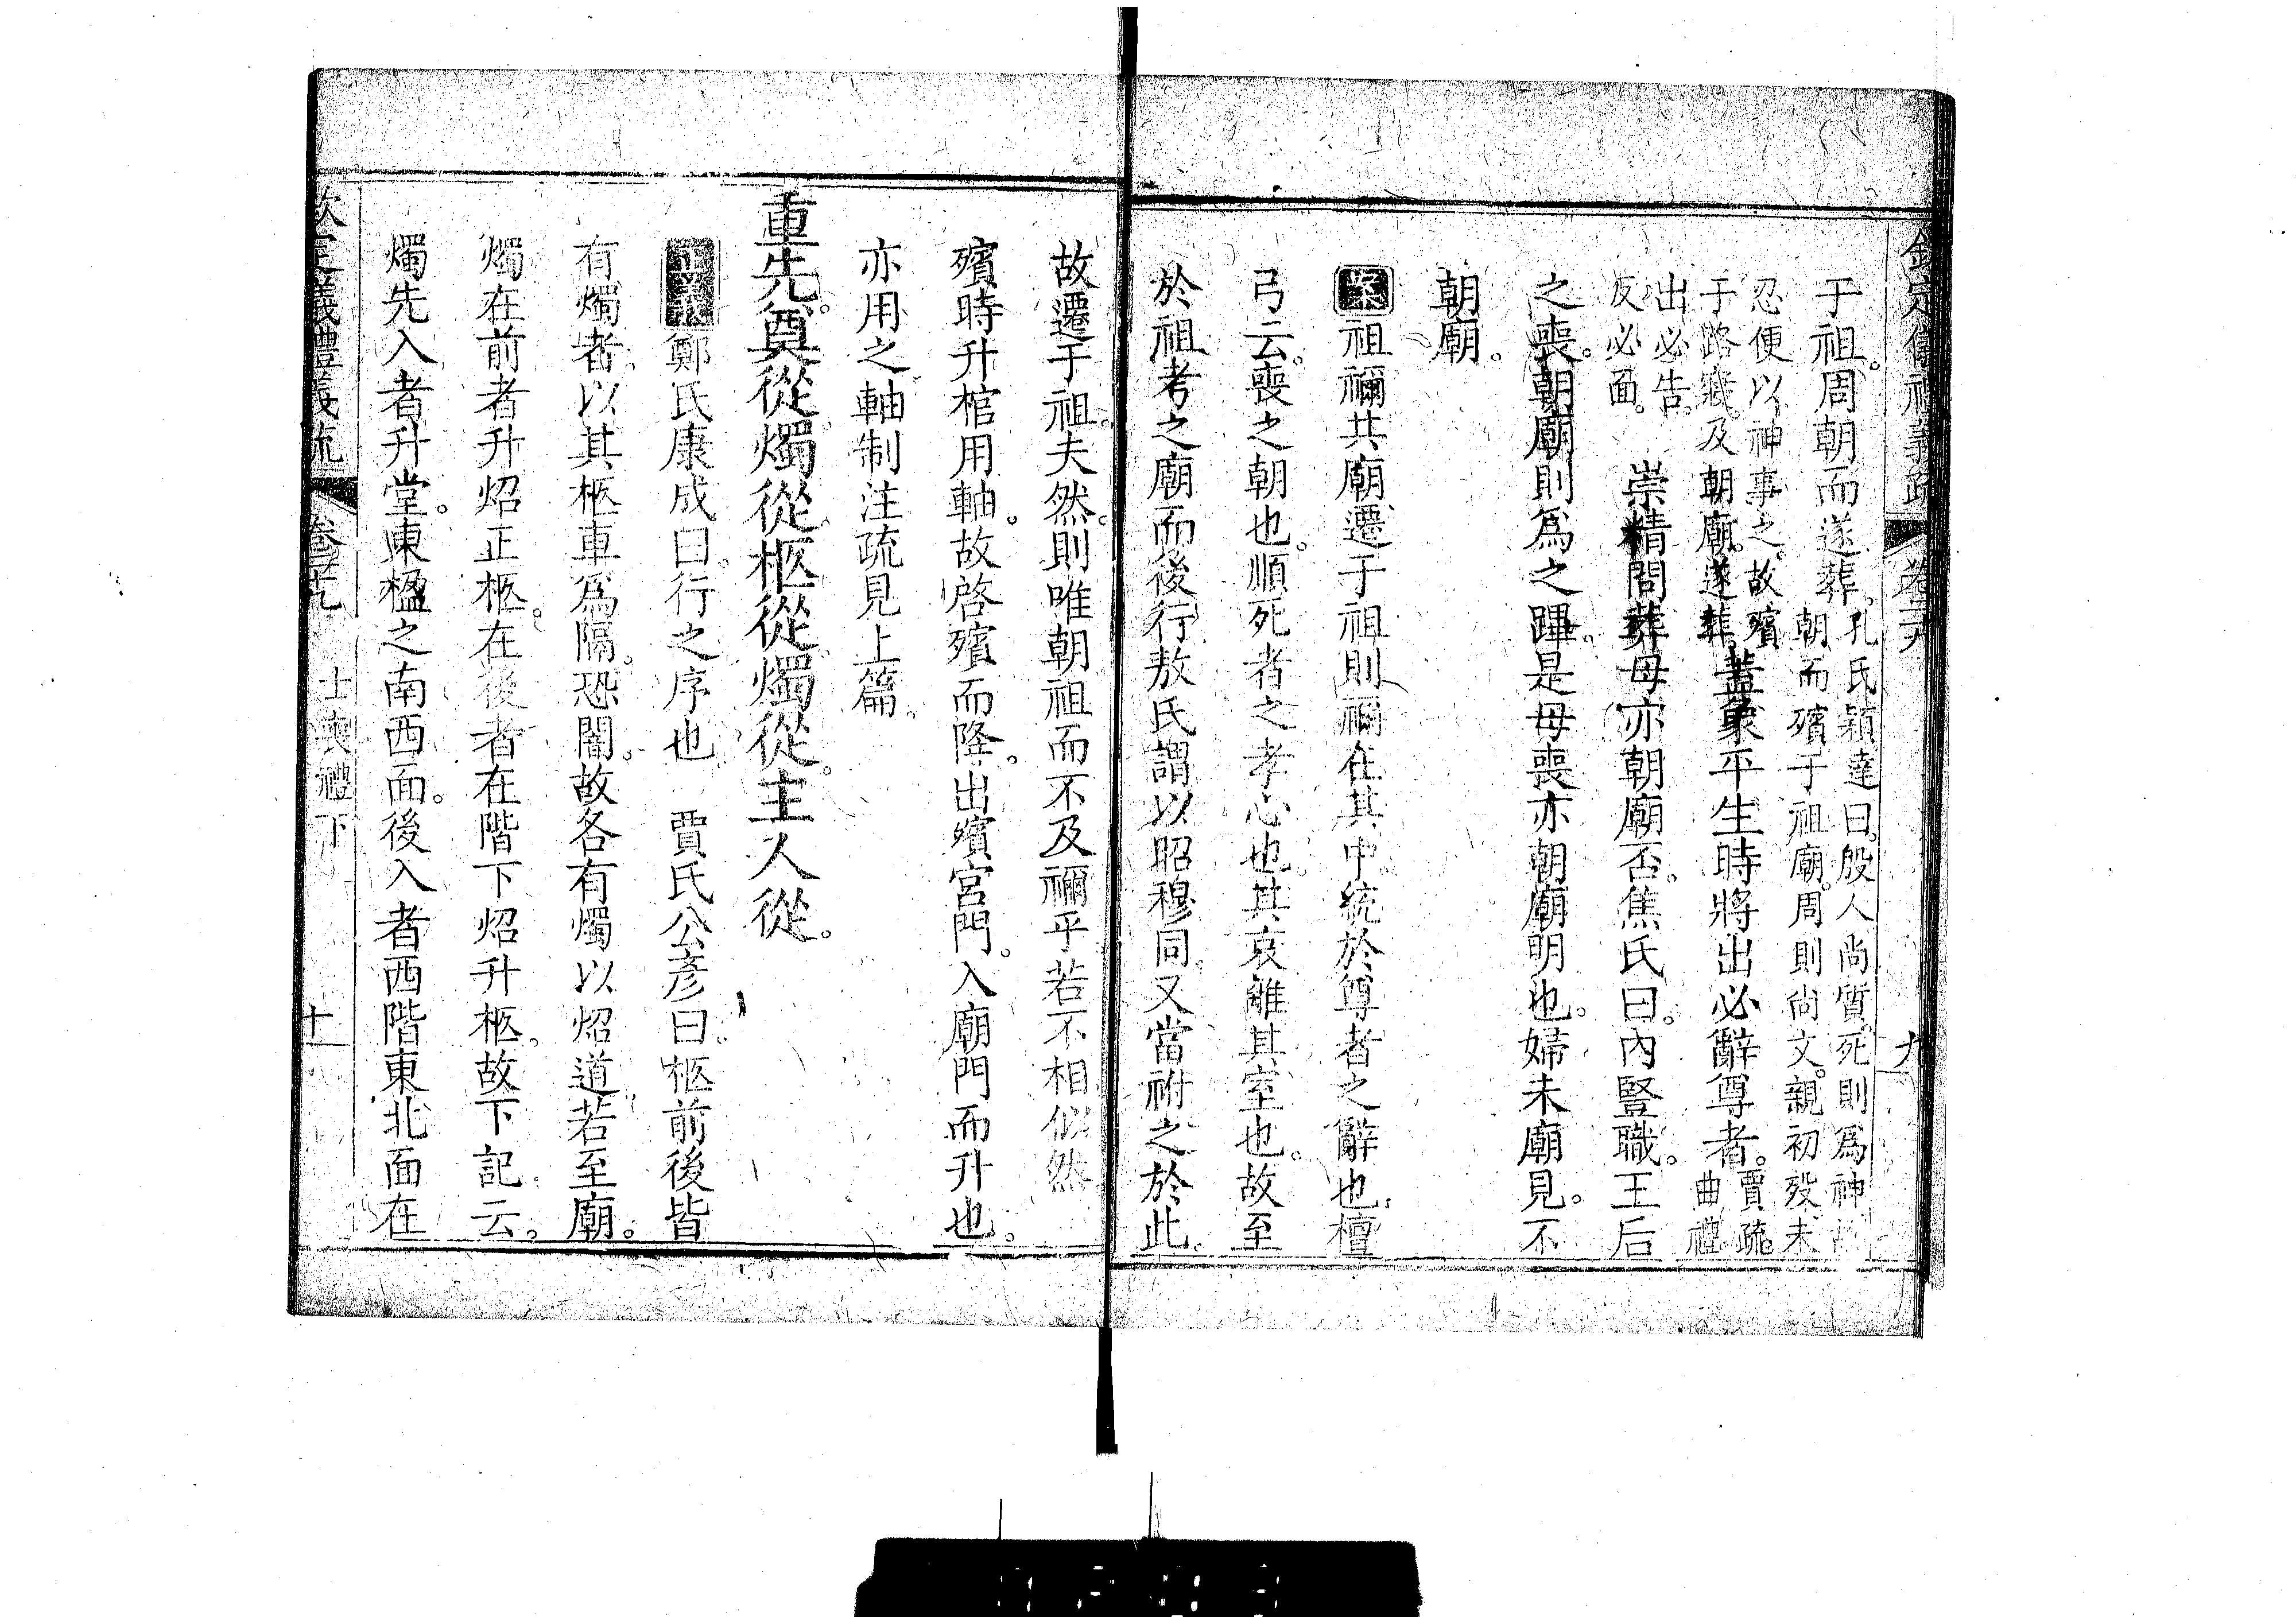 欽定儀禮義疏 卷二十九 九
于祖。周朝而遂葬。孔氏穎達曰。殷人尚質。死則爲神
朝而殯于祖廟。周則尚文。親初歿。未
忍便以神事之。故殯
于路寢。及朝廟。遂葬。蓋象平生時將出必辭尊者。賈疏。
曲禮
出必告。
反必面。 崇精問葬母亦朝廟否。焦氏曰。內豎職。王后
之喪。朝廟則爲之蹕。是母喪亦朝廟明也。婦未廟見。不
朝廟。
案祖禰共廟遷于祖則禰在其中。統於尊者之辭也。檀
弓云。喪之朝也。順死者之孝心也。其哀離其室也。故至
於祖考之廟而後行敖氏謂以昭穆同。又當祔之於此。
故遷于祖。夫然。則唯朝祖而不及禰乎若不相似然
殯時升棺用軸。故啓殯而降。出殯宮門。入廟門而升也。
亦用之軸制注疏見上篇。
重先。奠從燭從柩從燭從。主人從。
正義鄭氏康成曰。行之序也 賈氏公彥曰。柩前後皆
有燭者。以其柩車爲隔。恐闇。故各有燭以炤道若至廟。
燭在前者升炤正柩。在後者在階下炤升柩。故下記云。
燭先入者升堂。東楹之南西面。後入者西階東北面在
欽定儀禮義疏 卷二十九 士喪禮下 十